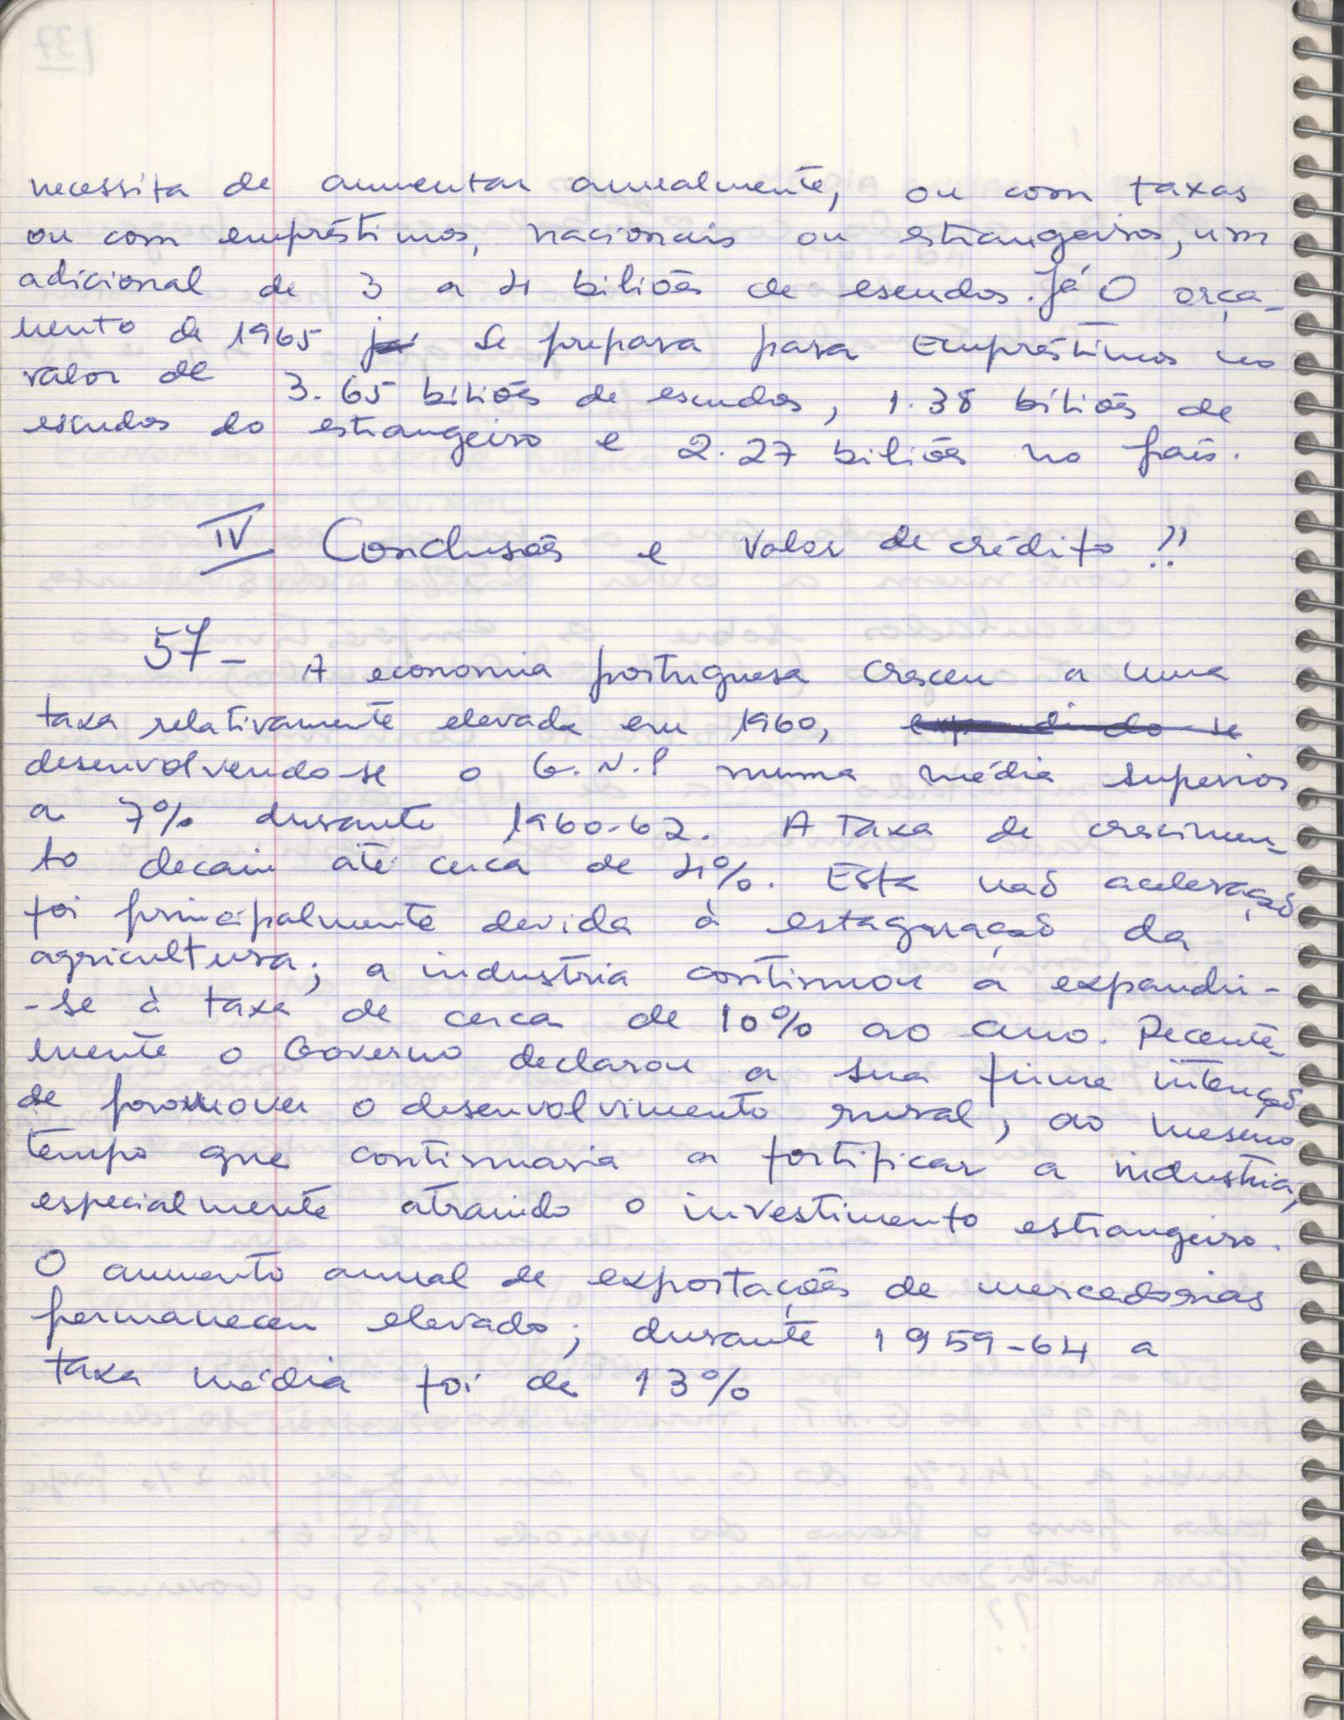 necessita de aumentar anualmente, ou com taxas
ou com empréstimos, nacionais ou estrangeiros, um
adicional de 3 a 4 biliões de escudos. Já O orça-
mento de 1965 já se prepara para empréstimos no
valor de 3.65 biliões de escudos, 1.38 biliões de
escudos do estrangeiro e 2.27 biliões no país.
IV Conclusões e Valor de crédito ?!
57- A economia portuguesa cresceu a uma
taxa relativamente elevada em 1960,
desenvolvendo-se o G.N.P numa média superior
a 7% durante 1960-62. A taxa de crescimen-
to decaiu até cerca de 4%. Esta não aceleração
foi principalmente devida à estagnação da
agricultura; a industria continuou a expandir-
-se à taxa de cerca de 10% ao ano. Recente-
mente o Governo declarou a sua firme intenção
de promover o desenvolvimento rural, ao mesmo
tempo que continuaria a fortificar a industria,
especialmente atraindo o investimento estrangeiro.
O aumento anual de exportações de mercadorias
permaneceu elevado; durante 1959-64 a
taxa média foi de 13%